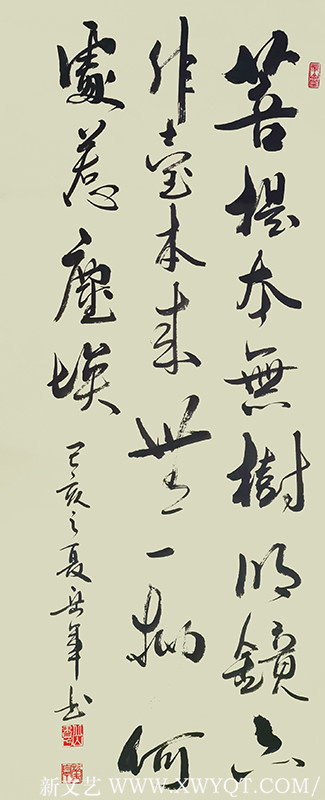 菩提本無樹明鏡亦
非臺本來無一物何
處惹塵埃
己亥之夏年书
新文艺 WWW.XWYQT.COM